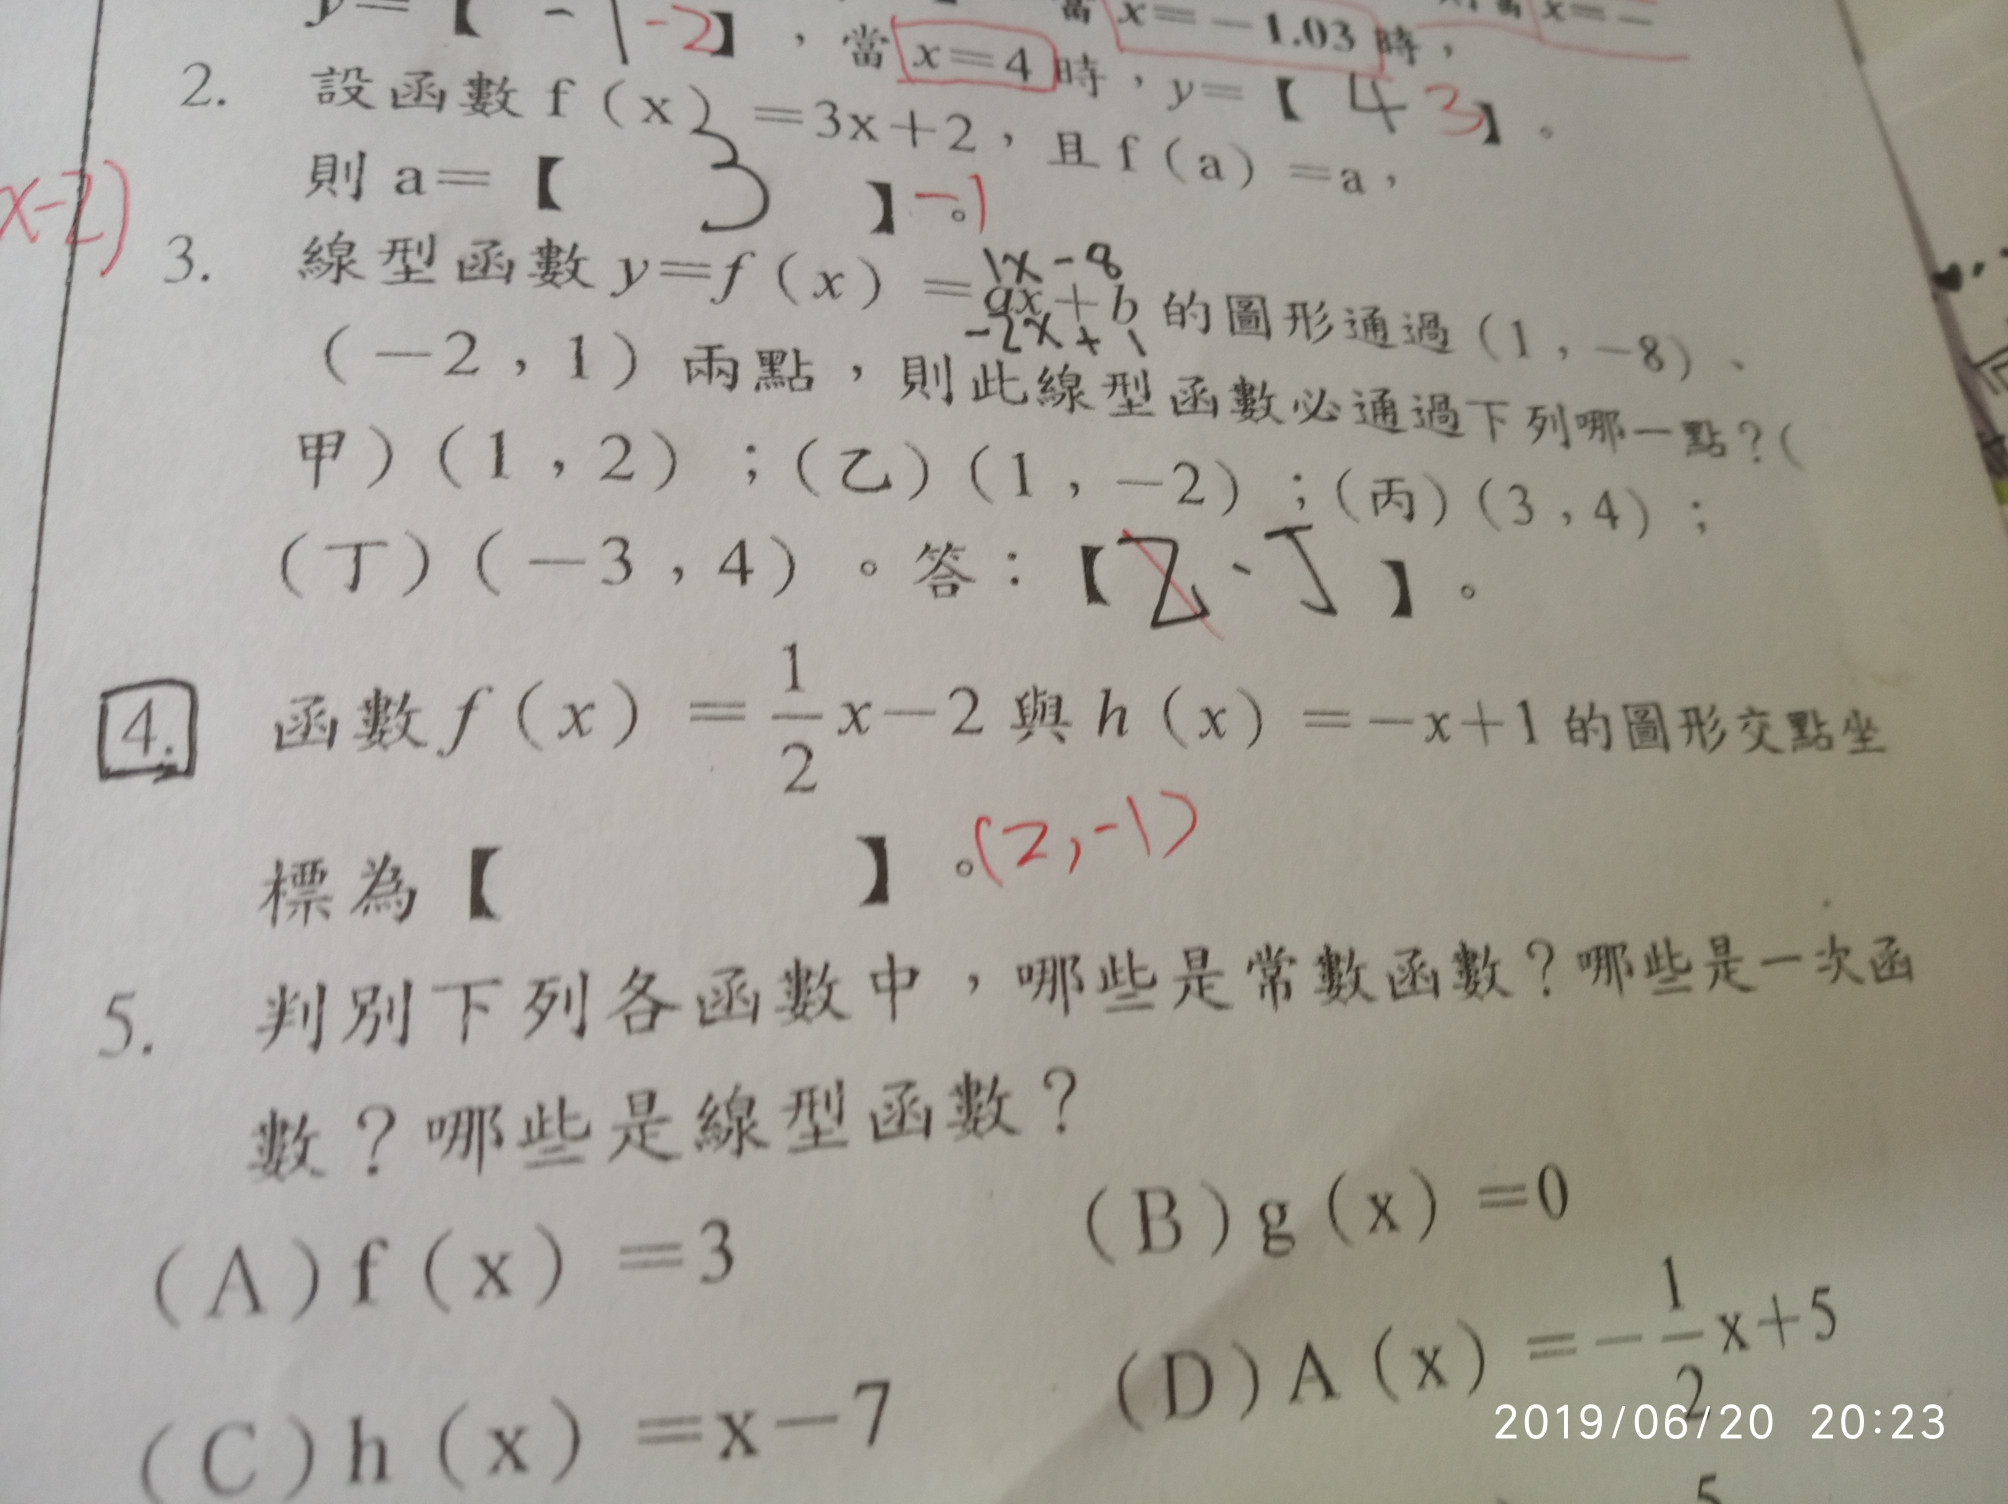 y=【 -1 -2】,當 x=4 時,y=【 4 3】。
當 x=-1.03 時,
x=-
2. 設函數 f(x)=3x+2,且 f(a)=a,
則 a=【 3 】。-1
x-2)
3. 線型函數 y=f(x)=ax+b 的圖形通過(1,-8)、
1x-8
-2x+1
(-2,1)兩點,則此線型函數必通過下列哪一點?(
甲)(1,2);(乙)(1,-2);(丙)(3,4);
(丁)(-3,4)。答:【乙、丁】。
4. 函數 f(x)=1/2x-2 與 h(x)=-x+1 的圖形交點坐
標為【 】。(2,-1)
5. 判別下列各函數中,哪些是常數函數?哪些是一次函
數?哪些是線型函數?
(A)f(x)=3 (B)g(x)=0
(C)h(x)=x-7 (D)A(x)=-1/2x+5
5
2019/06/20 20:23